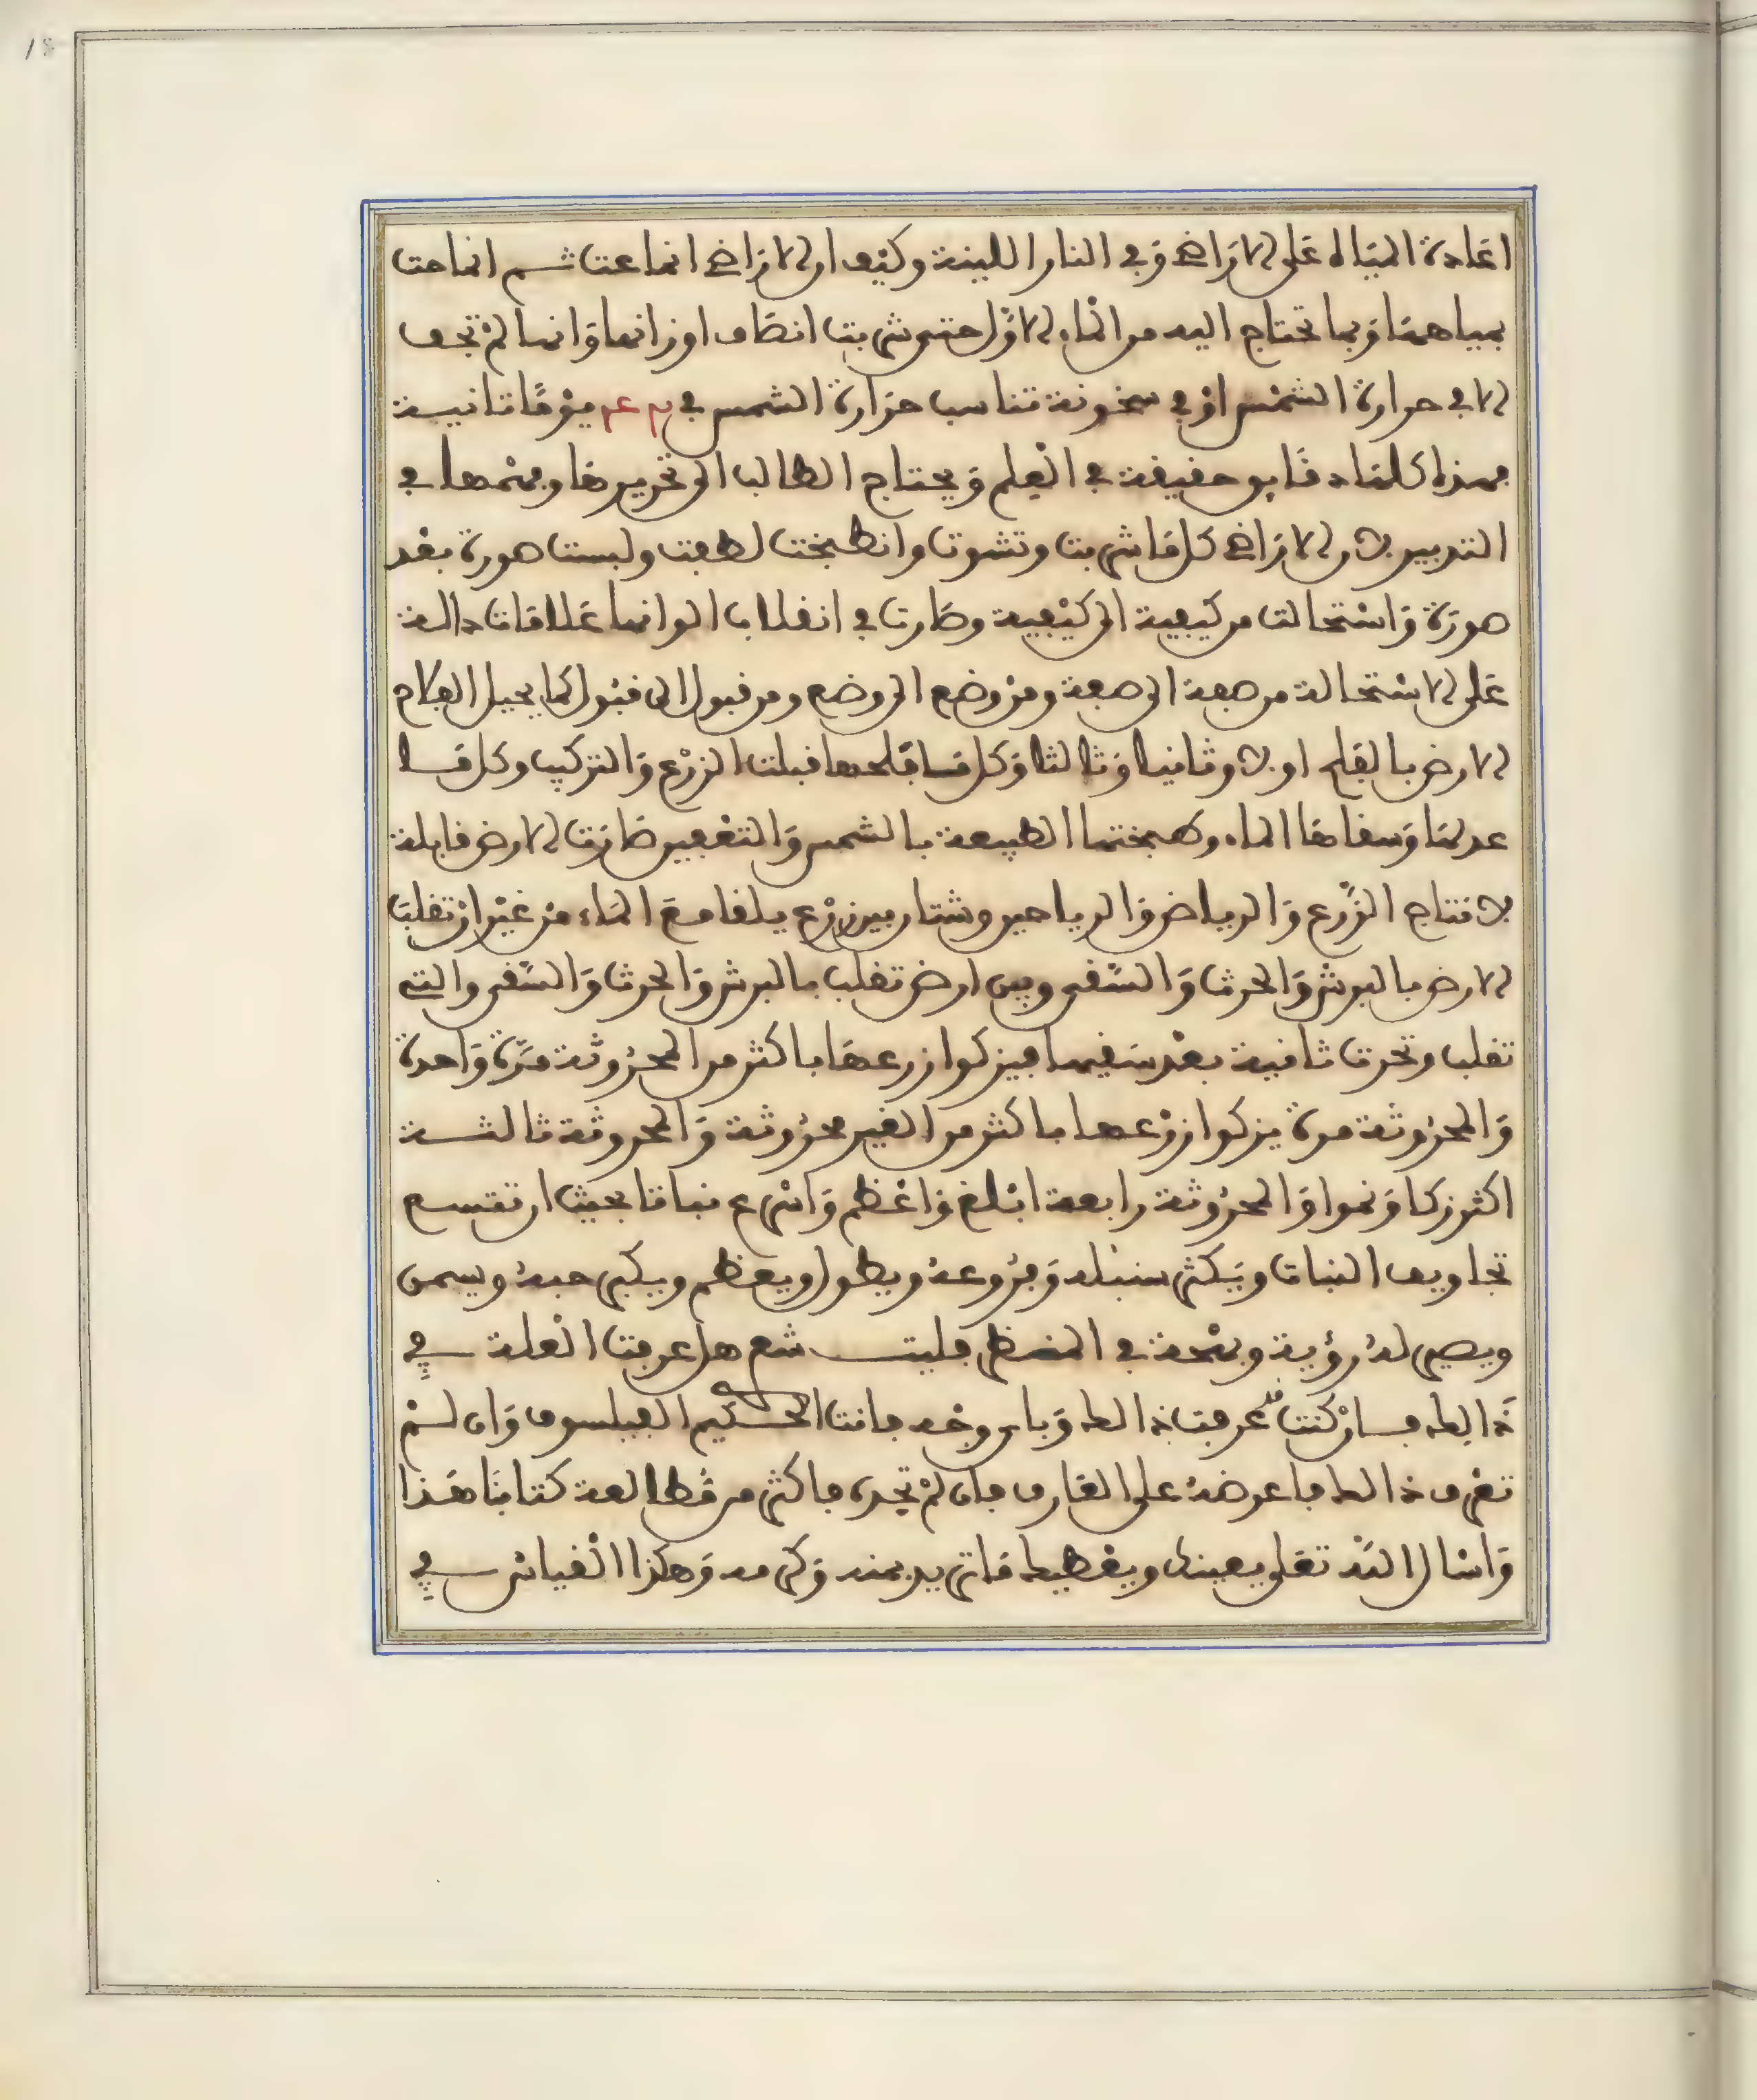 اعادة المياه على الاراضي وفي النار اللينة وكيف ان الاراضي انماعت ثم انماعت
بمياهها وبما تحتاج اليه من الماء الاول حتى شربت انصاف اوزانها وانها لم تجف
الا في حرارة الشمس او في سخونة تناسب حرارة الشمس في يوما ثانية
فهذا كله دقايق حقيقة في العلم ويحتاج الطالب الى تحريرها وفهمها في
التدبير لان الاراضي كل ما شربت وتشوت وانطبخت لطفت ولبست صورة بعد
صورة واستحالت من كيفية الى كيفية وصارت في انقلاب الوانها علامات دالة
على الاستحالة من صفة الى صفة ومن وضع الى وضع ومن قبول الى قبول كما يحيل الفلاح
الارض بالفلح اولا وثانيا وثالثا وكل ما فلحها قبلت الزرع والتركيب وكل ما
عدلها وسقاها الماء وطبختها الطبيعة بالشمس والتعفين صارت الارض قابلة
لانتاج الزرع والرياض والرياحين وشتان بين زرع يلقا مع الماء من غير ان تقلب
الارض بالبرش والحرث والسقي وبين ارض تقلب بالبرش والحرث والسقي والتي
تقلب وتحرث ثانية بعد سقيها فيزكوا زرعها باكثر من المحروثة مرة واحدة
والمحروثة مرة يزكوا زرعها باكثر من الغير محروثة والمحروثة ثالثة
اكثر زكا ونموا والمحروثة رابعة ابلغ واعظم واسرع نباتا بحيث ان تتسع
تجاويف النبات ويكثر سنبله وفروعه ويطول ويعظم ويكبر حبه ويسمن
ويصير له رؤية وبهجة في المنظر فليت شعري هل عرفت العلة في
ذالك فان كنت قد عرفت ذالك وباي وجه فانت الحكيم الفيلسوف وان لم
تعرف ذالك فاعرضه على العارف فان لم تجده فاكثر من مطالعة كتابنا هذا
واسال الله تعلى يعينك ويعطيك ما تريد بمنه وكرمه وهكذا القياس في